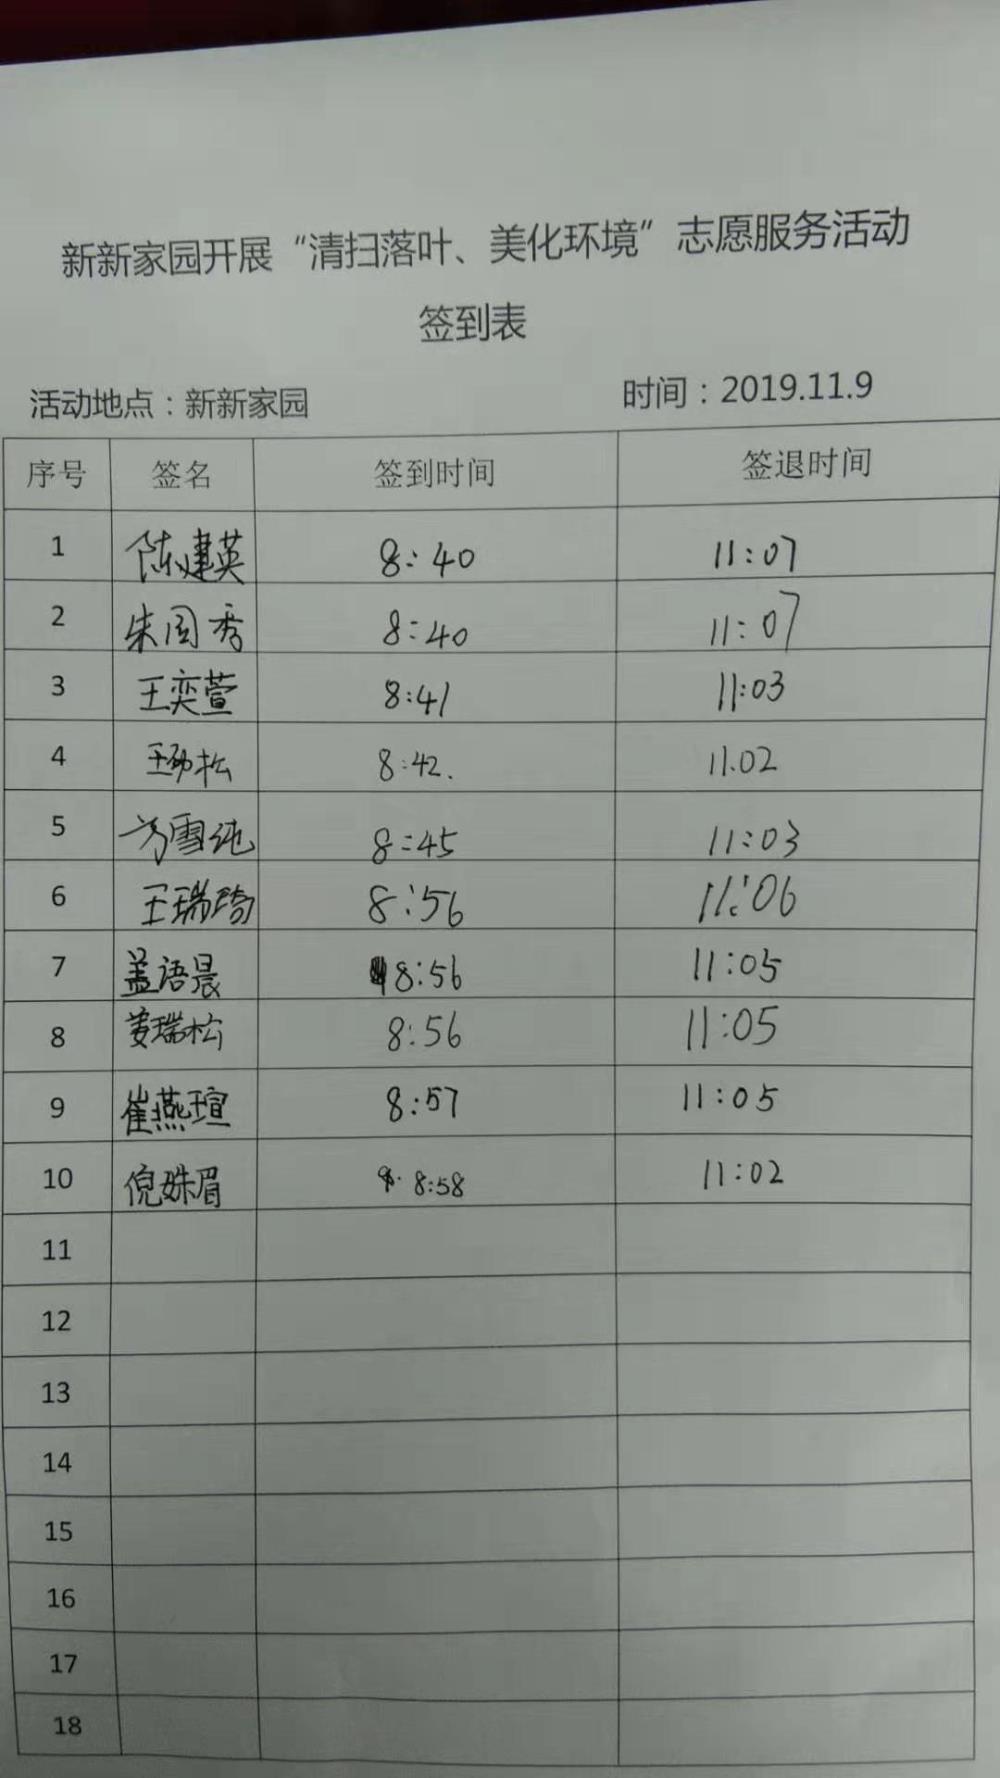 新新家园开展“清扫落叶、美化环境”志愿服务活动
签到表
活动地点：新新家园 时间：2019.11.9
序号 签名 签到时间 签退时间
1 陈建英 8:40 11:07
2 朱国秀 8:40 11:07
3 王奕萱 8:41 11:03
4 王松 8:42. 11.02
5 方雪纯 8:45 11:03
6 王瑞琦 8:56 11:06
7 盖语晨 8:56 11:05
8 姜瑞松 8:56 11:05
9 崔燕瑄 8:57 11:05
10 倪姝眉 8:58 11:02
11
12
13
14
15
16
17
18